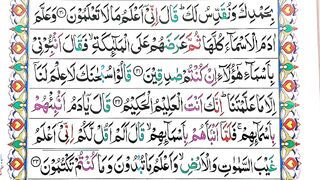 بِحَمْدِكَ وَنُقَدِّسُ لَكَ ؕ قَالَ اِنِّیْۤ اَعْلَمُ مَا لَا تَعْلَمُوْنَ ﴿۳۰﴾ وَعَلَّمَ
اٰدَمَ الْاَسْمَآءَ كُلَّهَا ثُمَّ عَرَضَهُمْ عَلَى الْمَلٰٓئِكَةِ ۙ فَقَالَ اَنْۢبِـُٔوْنِیْ
بِاَسْمَآءِ هٰۤؤُلَآءِ اِنْ كُنْتُمْ صٰدِقِیْنَ ﴿۳۱﴾ قَالُوْا سُبْحٰنَكَ لَا عِلْمَ لَنَاۤ
اِلَّا مَا عَلَّمْتَنَا ؕ اِنَّكَ اَنْتَ الْعَلِیْمُ الْحَكِیْمُ ﴿۳۲﴾ قَالَ یٰۤاٰدَمُ اَنْۢبِئْهُمْ
بِاَسْمَآئِهِمْ ۚ فَلَمَّاۤ اَنْۢبَاَهُمْ بِاَسْمَآئِهِمْ ۙ قَالَ اَلَمْ اَقُلْ لَّكُمْ اِنِّیْۤ اَعْلَمُ
غَیْبَ السَّمٰوٰتِ وَالْاَرْضِ ۙ وَاَعْلَمُ مَا تُبْدُوْنَ وَمَا كُنْتُمْ تَكْتُمُوْنَ ﴿۳۳﴾